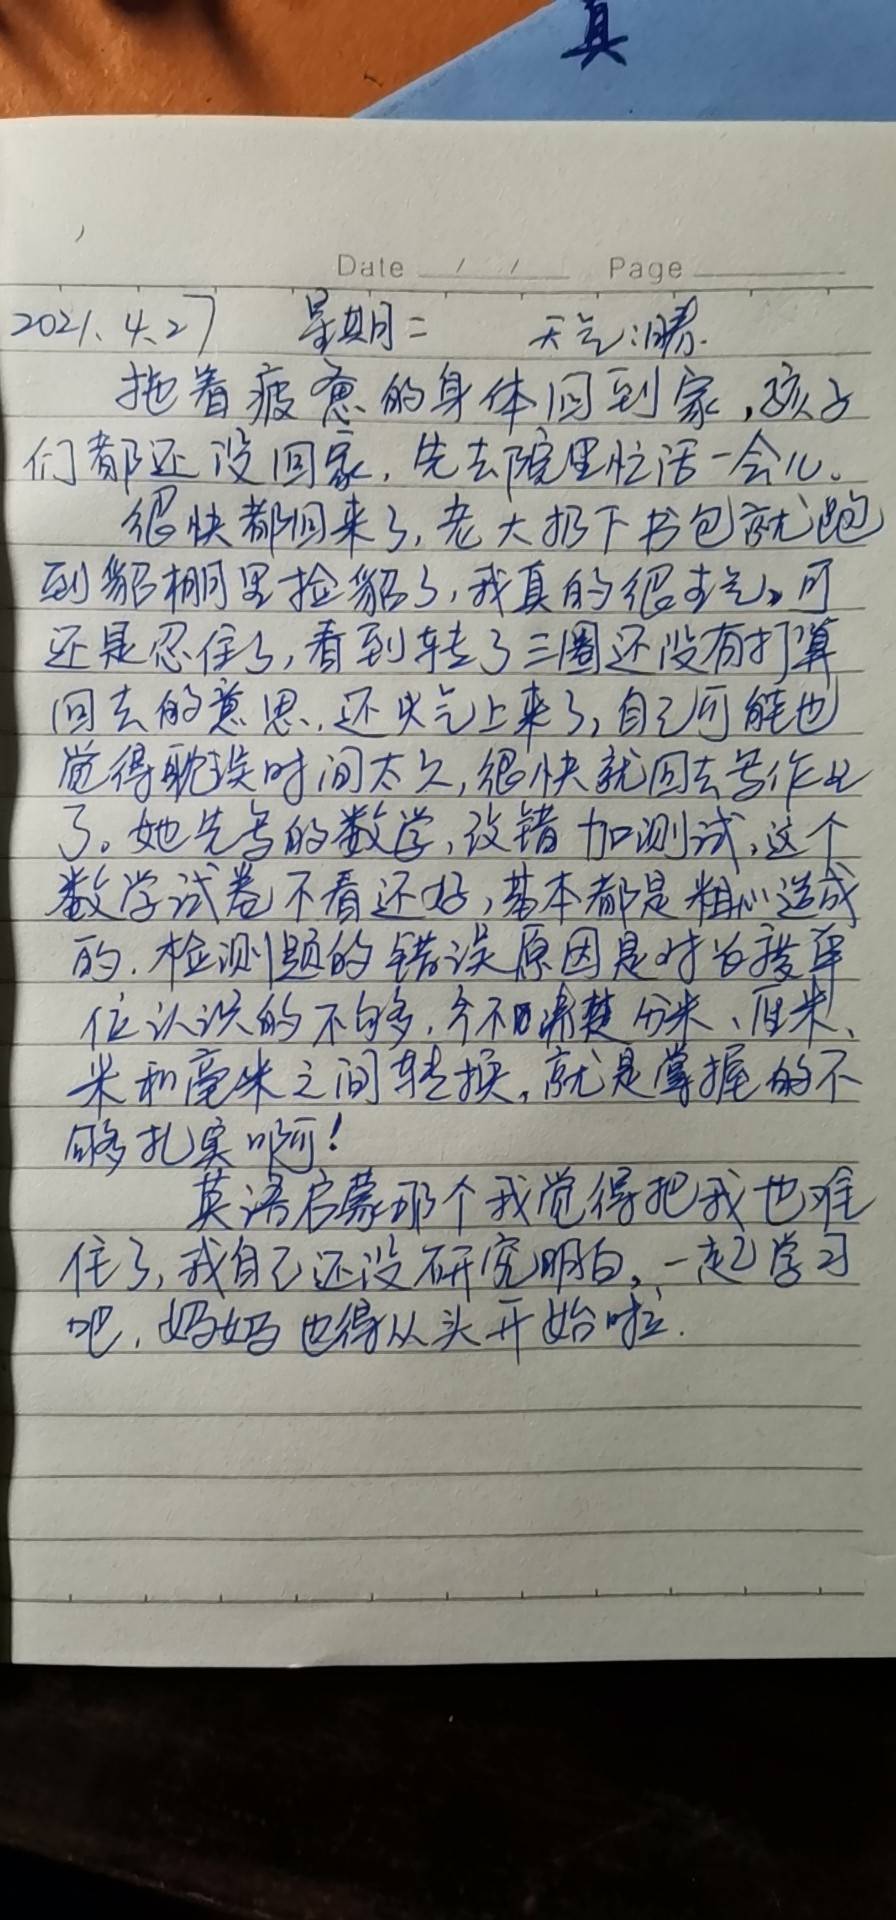 真
Date / / Page
2021.4.27 星期二 天气:晴.
拖着疲惫的身体回到家,孩子
们都还没回家,先去院里忙活一会儿。
很快都回来了,老大扔下书包就跑
到貂棚里捡貂了,我真的很生气,可
还是忍住了,看到转了三圈还没有打算
回去的意思,还火气上来了,自己可能也
觉得耽误时间太久,很快就回去写作业
了。她先写的数学,改错加测试,这个
数学试卷不看还好,基本都是粗心造成
的,检测题的错误原因是对长度单
位认识的不够,分不清楚分米、厘米、
米和毫米之间转换,就是掌握的不
够扎实啊!
英语启蒙那个我觉得把我也难
住了,我自己还没研究明白,一起学习
吧,妈妈也得从头开始啦.